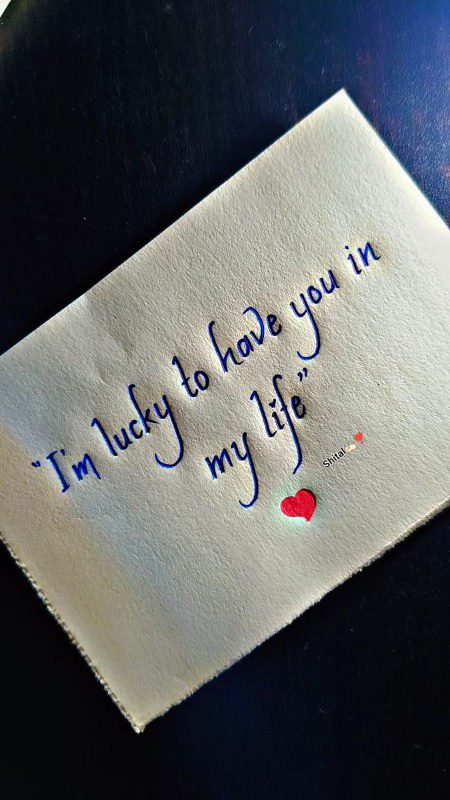 "I'm lucky to have you in
my life"
Shital✍🏻❤️